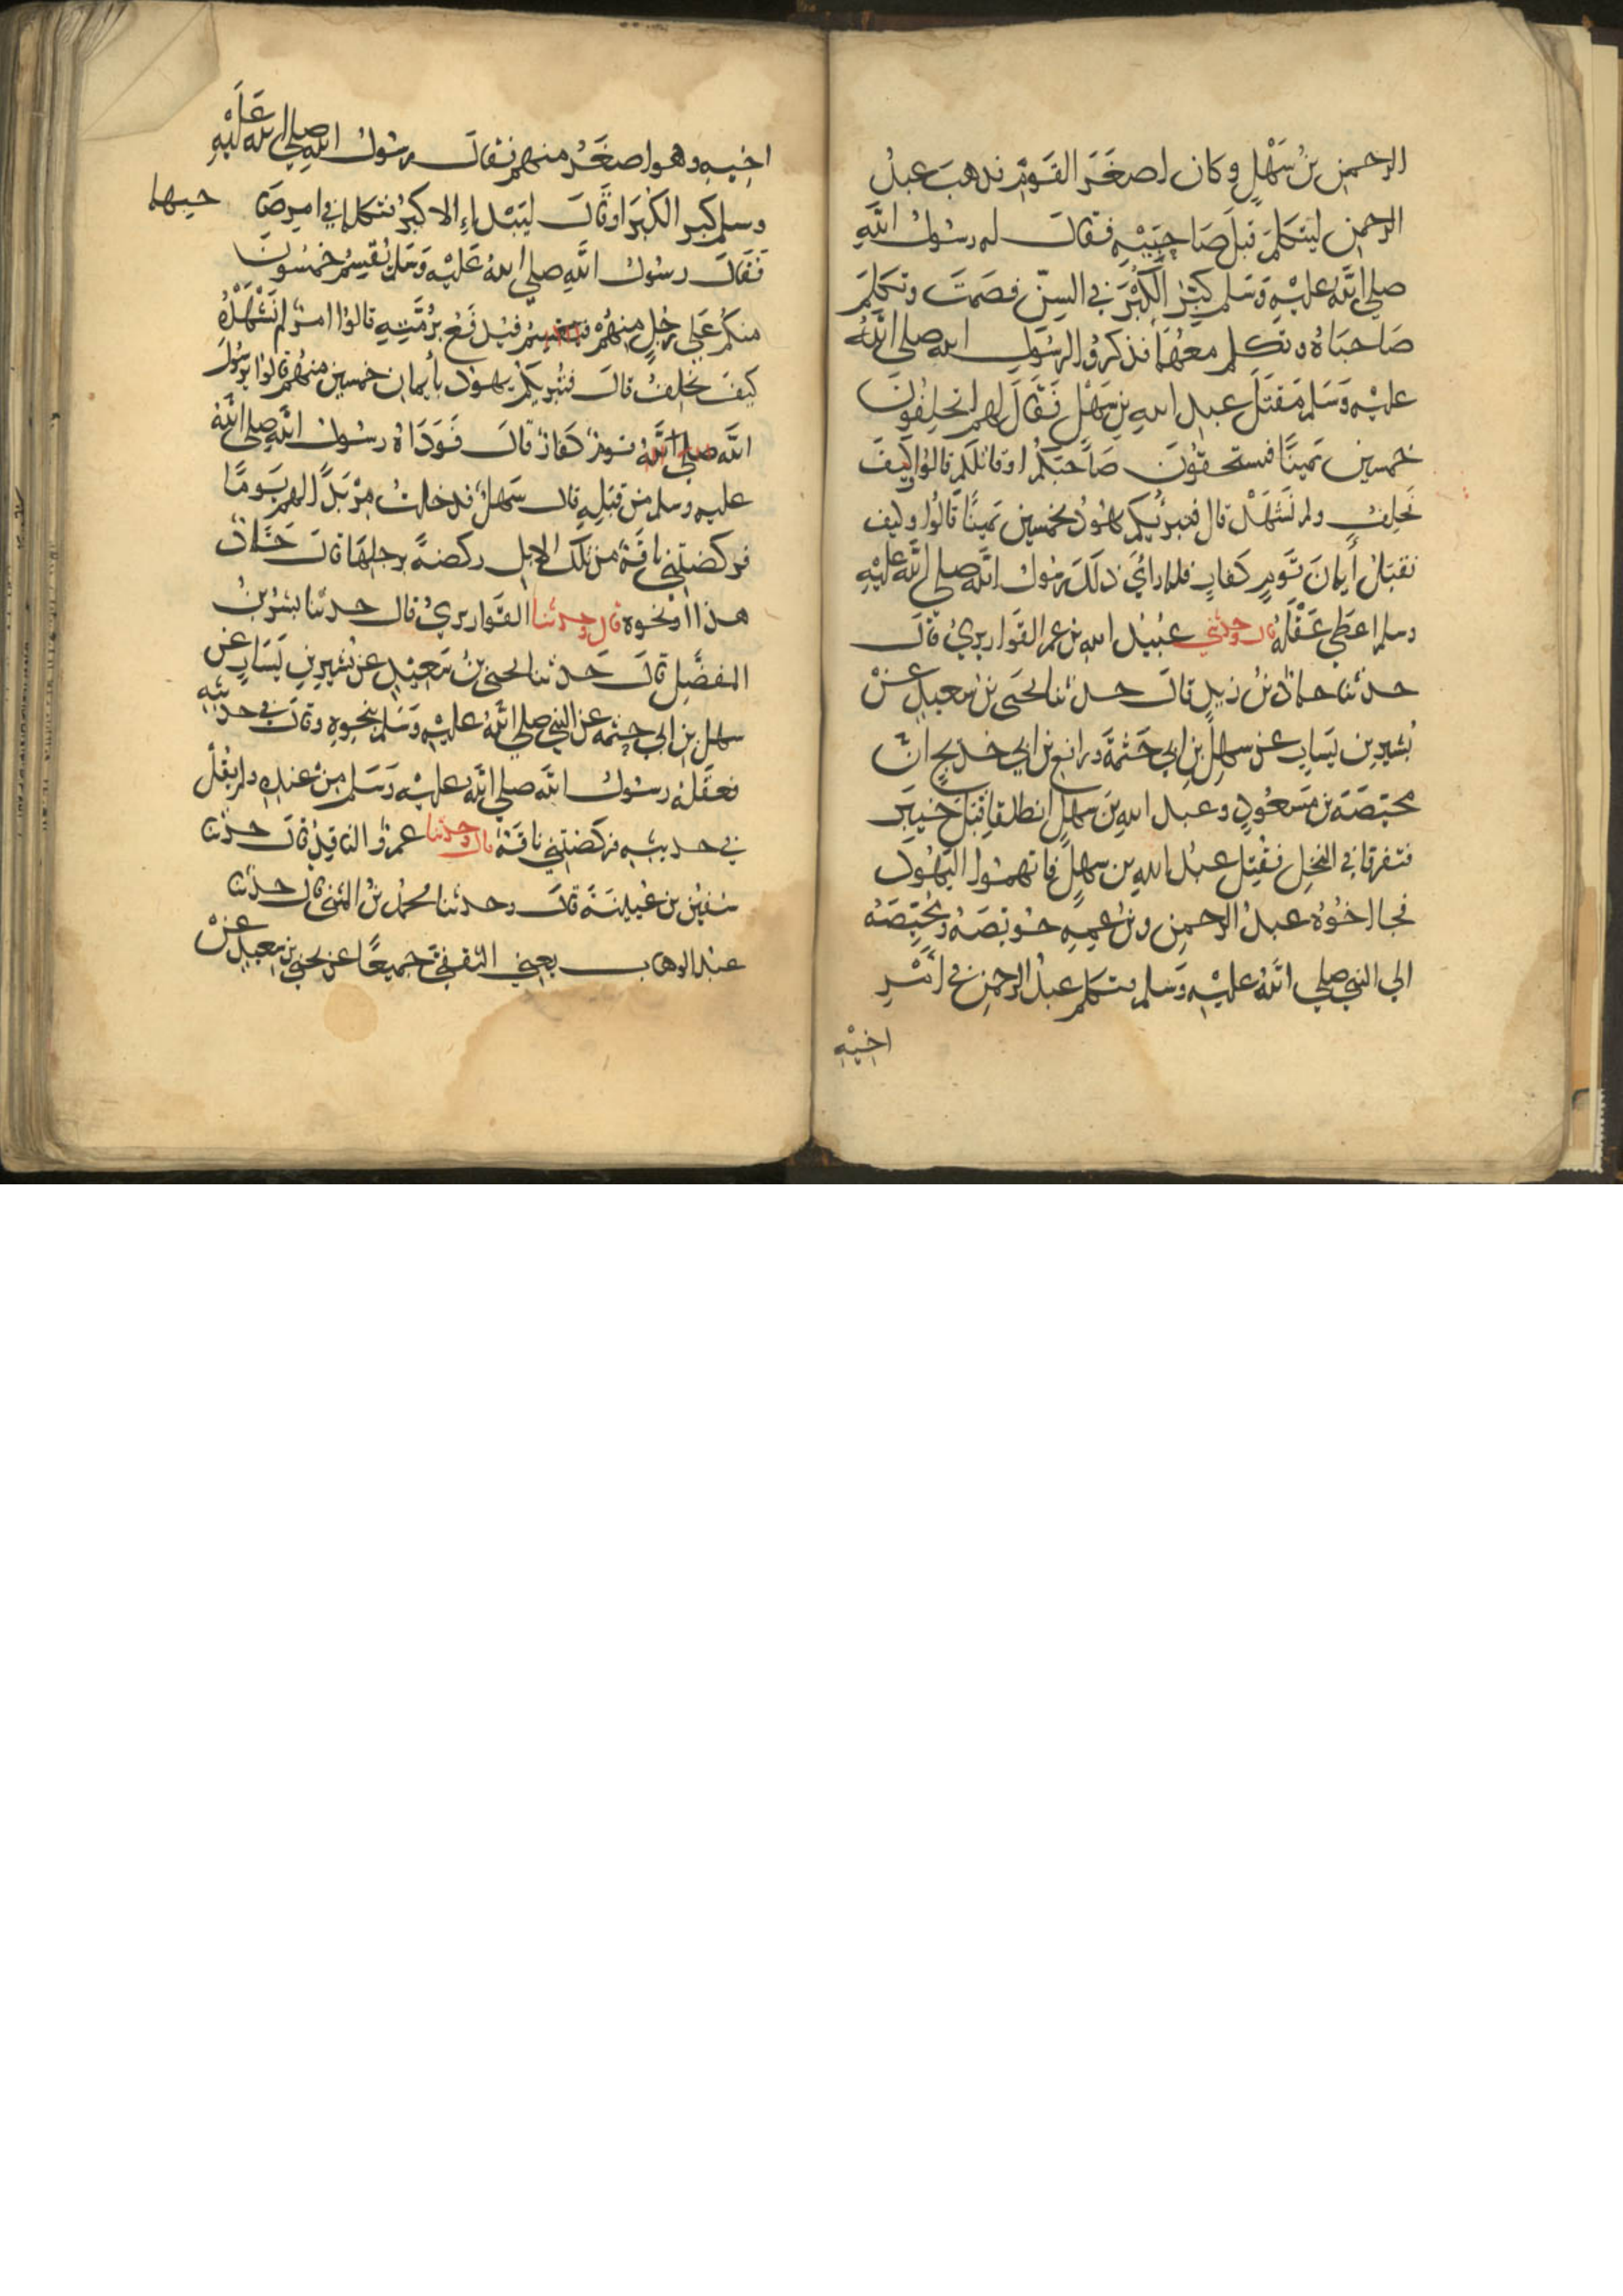 الرحمن بنُ سَهْلٍ وكان اصغَرَ القَوْمِ فذهبَ عبدُ
الرحمن ليتكلمَ قبلَ صَاحِبَيْهِ فقالَ له رسُولُ اللَّهِ
صلى اللَّه عليْهِ وَسَلم كبِّرْ الكُبْرَ في السِنّ فصَمتَ وتكلمَ
صَاحبَاهُ وتكلم معهُمَا فذكرُوا لرسُولِ الله صلى اللَّهُ
عليْهِ وَسَلم مَقتَلَ عبدِ الله بنِ سَهْلٍ فَقَالَ لهم اتحلِفُونَ
خمسين يَمينًا فتستحقوُنَ صَاحبَكم او قاتلكم قالوُا كيْفَ
نَحلِفُ ولم نَشهَدْ قال فتبرئُكم يهُودُ بخمسين يَمينًا قالُوا وكيف
نقبَلُ أيمانَ قَوْمٍ كفارٍ فلما رأَي ذلكَ رسُولُ اللَّه صلى اللَّه عليْهِ
وسلم اعطَي عَقْلَهُ قال وحدثني عبيْدُ الله بن عمر القواريريُ قالَ
حدثنا حمادُ بنُ زيدٍ قالَ حدثنا يحيَى بنُ سَعيدٍ عَنْ
بُشيرِ بن يَسَارٍ عن سهلِ بنِ ابي حَثْمَةَ ورافع بن ابي خديجٍ انَّ
محيِّصَةَ بن مَسْعُودٍ وعبد اللهِ بنَ سَهلٍ انطلقا قِبَلَ خيْبَرَ
فتفرقا في النخلِ فقُتِلَ عبدُ اللهِ بن سهلٍ فاتهموُا اليَهُودَ
فجا اخُوُهُ عبدُ الرحمن وبنُ عمِهِ حُويّصَهُ ومُحيِّصَهُ
الي النبي صلي اللَّهُ عليْهِ وَسَلم فتكلم عبدُ الرحمن في أَمْرِ
اخيْهِ
اخيهِ وهو اصغَرُ منهم فقالَ رسُولُ الله صلي الله عَلَيْهِ
وسلم كبر الكُبْرَ او قَالَ ليَبْدإِ الاكبرُ فتكلما في امر صَا حبهما
فَقَالَ رسُولُ اللَّهِ صلي اللهُ عَليْهِ وَسَلمَ يُقسِمُ خمْسُونَ
منكُمْ عَلي رَجُلٍ منهُمْ فيُدفَعُ برُمَّتِهِ قالوُا امرٌ لم نَشْهَدْهُ
كيْفَ نحلِفُ قالَ فتبريكُم يهودُ بأيمان خمسين منهُم قالُوا يرسُولَ
اللَّه قومٌ كفارٌ قالَ فَوَدَاهُ رسُولُ اللَّهِ صلي اللَّهُ
عليهِ وسلم من قِبَلِهِ قالَ سَهلٌ فدخلتُ مِرْبَدًا لهم يَوماً
فركضتني ناقَةٌ من تلكَ الابِلِ ركضةً برجلِهَا قالَ حَمَّادُ
هذا او نحوه قال وحدثنا القَواريريُ قال حدثنا بشرُ بنُ
المفضَّلِ قالَ حَدثنا يحيَى بنُ سَعيْدٍ عن بُشيرِ بنِ يَسَارٍ عَن
سهلِ بن ابي حثمه عن النبي صلي اللَّهُ عليْهِ وَسَلم بنحوِهِ وقالَ في حديثه
فعقَلهُ رسُولُ اللَّه صلي اللَّهُ عليْهِ وَسَلم مِنْ عندِهِ ولم يقُلْ
في حديثِهِ فركَضَتني ناقَةٌ قال وحدثنا عمرٌو الناقِدُ قالَ حدثنا
سُفيْنُ بن عُيَيْنَةَ قالَ وحدثنا محمدُ بنُ المثنى قال حدثنا
عبْدُ الوهابِ يعني الثقفيَّ جميعًا عن يحيى بن سَعِيدٍ عَنْ